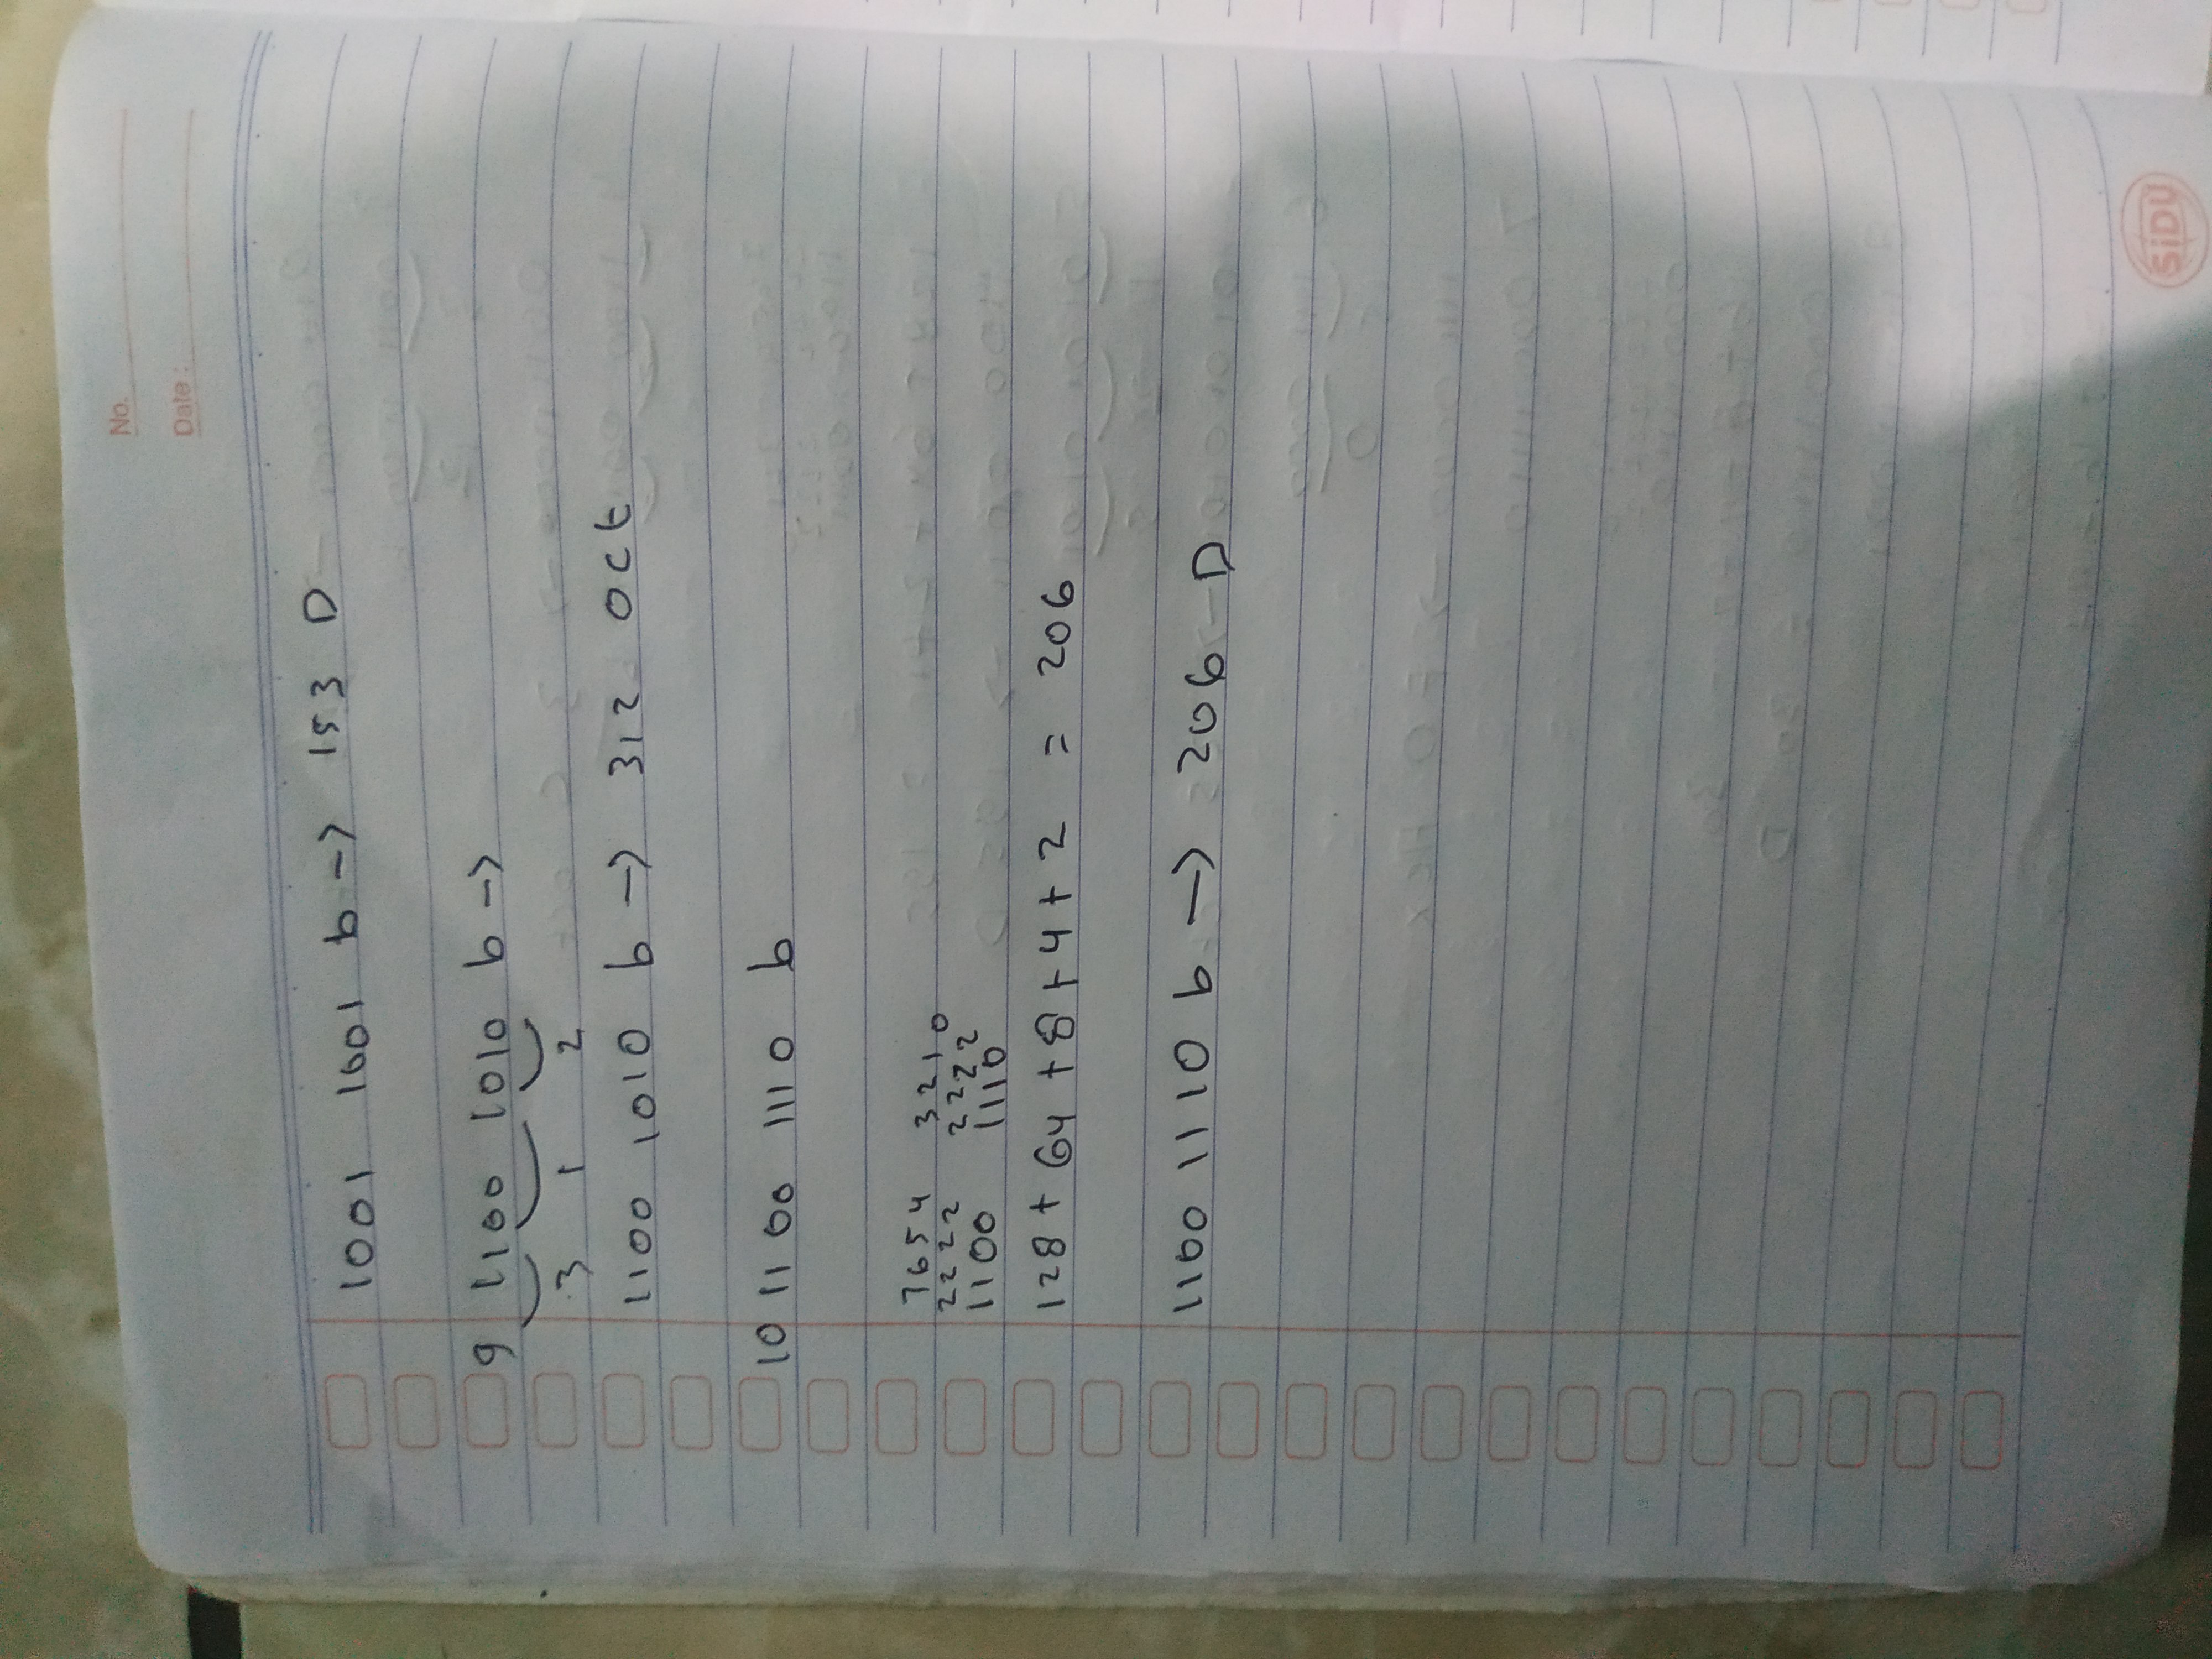 No.
Date :
1001 1001 b -> 153 D
9 1100 1010 b ->
3 1 2
1100 1010 b -> 312 oct
10 1100 1110 b
7654 3210
2222 2222
1100 1110
128 + 64 + 8 + 4 + 2 = 206
1100 1110 b -> 206 D
SiDU